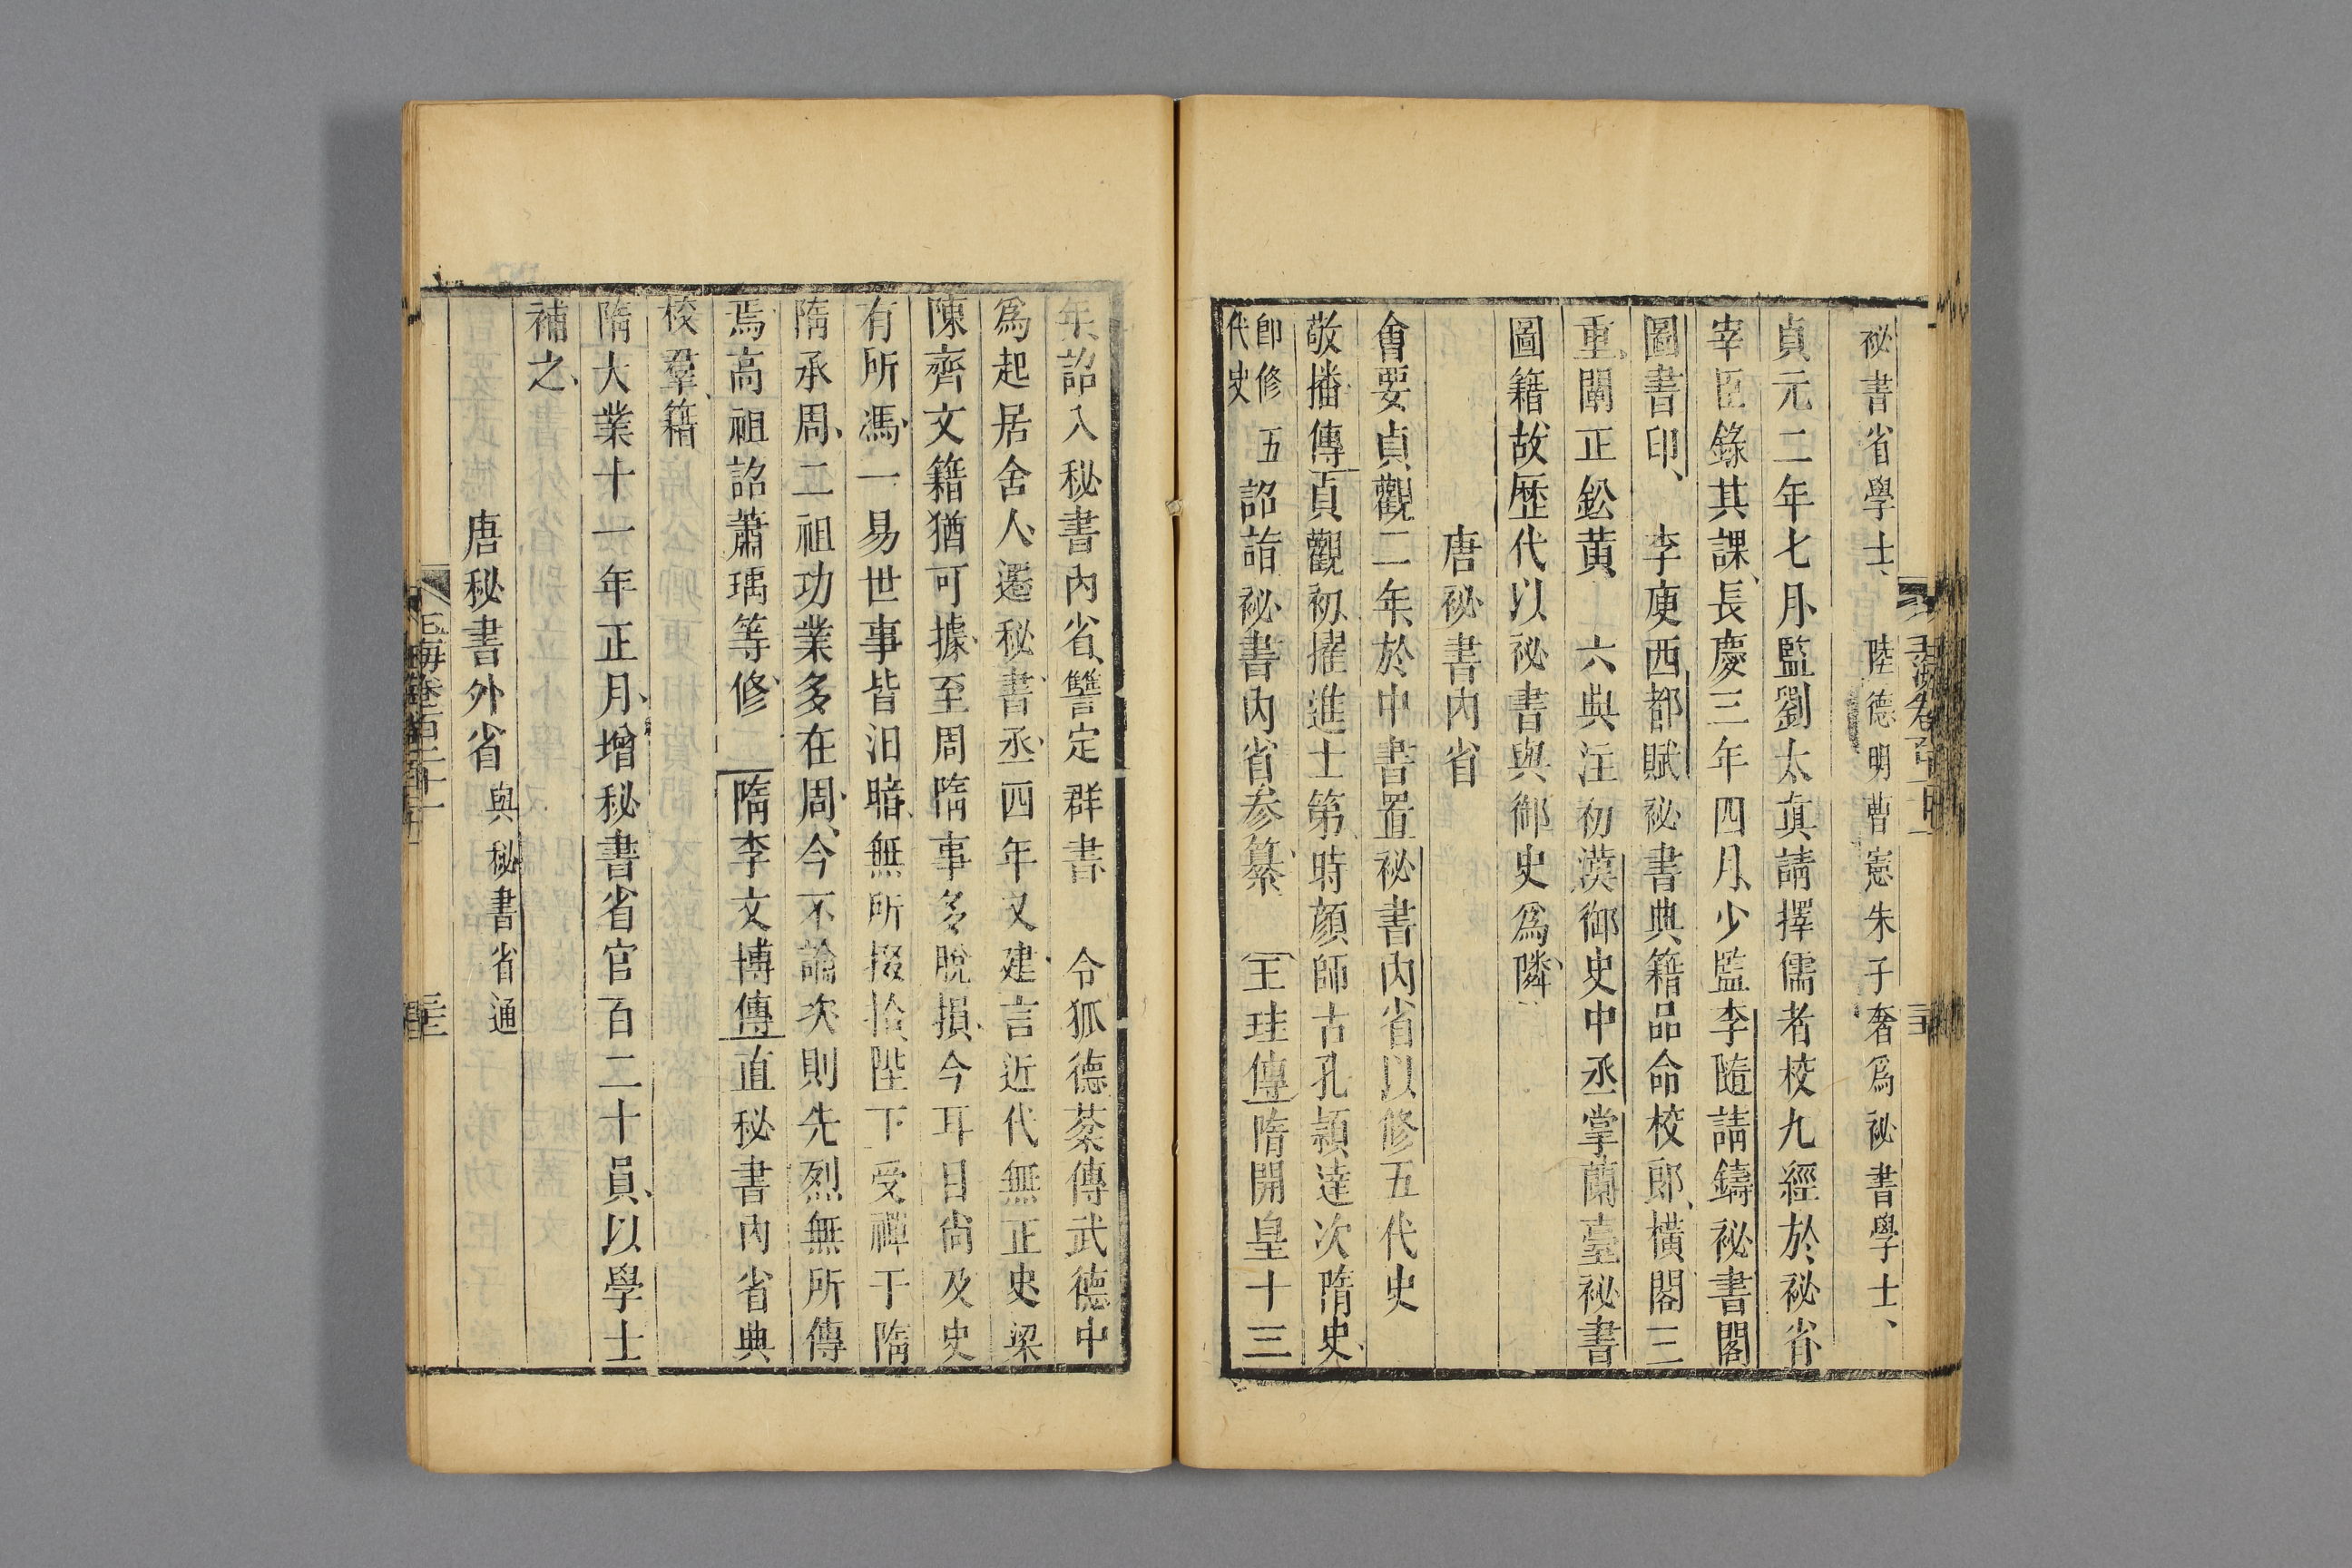 祕書省學士陸德明曹憲朱子奢爲祕書學士
貞元二年七月監劉太真請擇儒者校九經於祕省
宰臣錄其課長慶三年四月少監李隨請鑄祕書閣
圖書印 李庾西都賦祕書典籍品命校郎橫閣三
重闈正鈆黄 六典注初漢御史中丞掌蘭臺祕書
圖籍故歷代以祕書與御史爲隣
唐祕書內省
會要貞觀二年於中書置祕書內省以修五代史
敬播傳貞觀初擢進士第時顔師古孔頴達次隋史
詔詣祕書內省參纂 即修五代史 王珪傳隋開皇十三
年詔入秘書內省讐定群書 令狐德棻傳武德中
爲起居舍人遷秘書丞四年又建言近代無正史梁
陳齊文籍猶可據至周隋事多脫損今耳目尚及史
有所馮一易世事皆汨暗無所掇拾陛下受禪于隋
隋承周二祖功業多在周今不論次則先烈無所傳
焉高祖詔蕭瑀等修 隋李文博傳直秘書內省典
校羣籍
隋大業十一年正月增秘書省官百二十員以學士
補之
唐秘書外省 與秘書省通
玉海卷百二十一